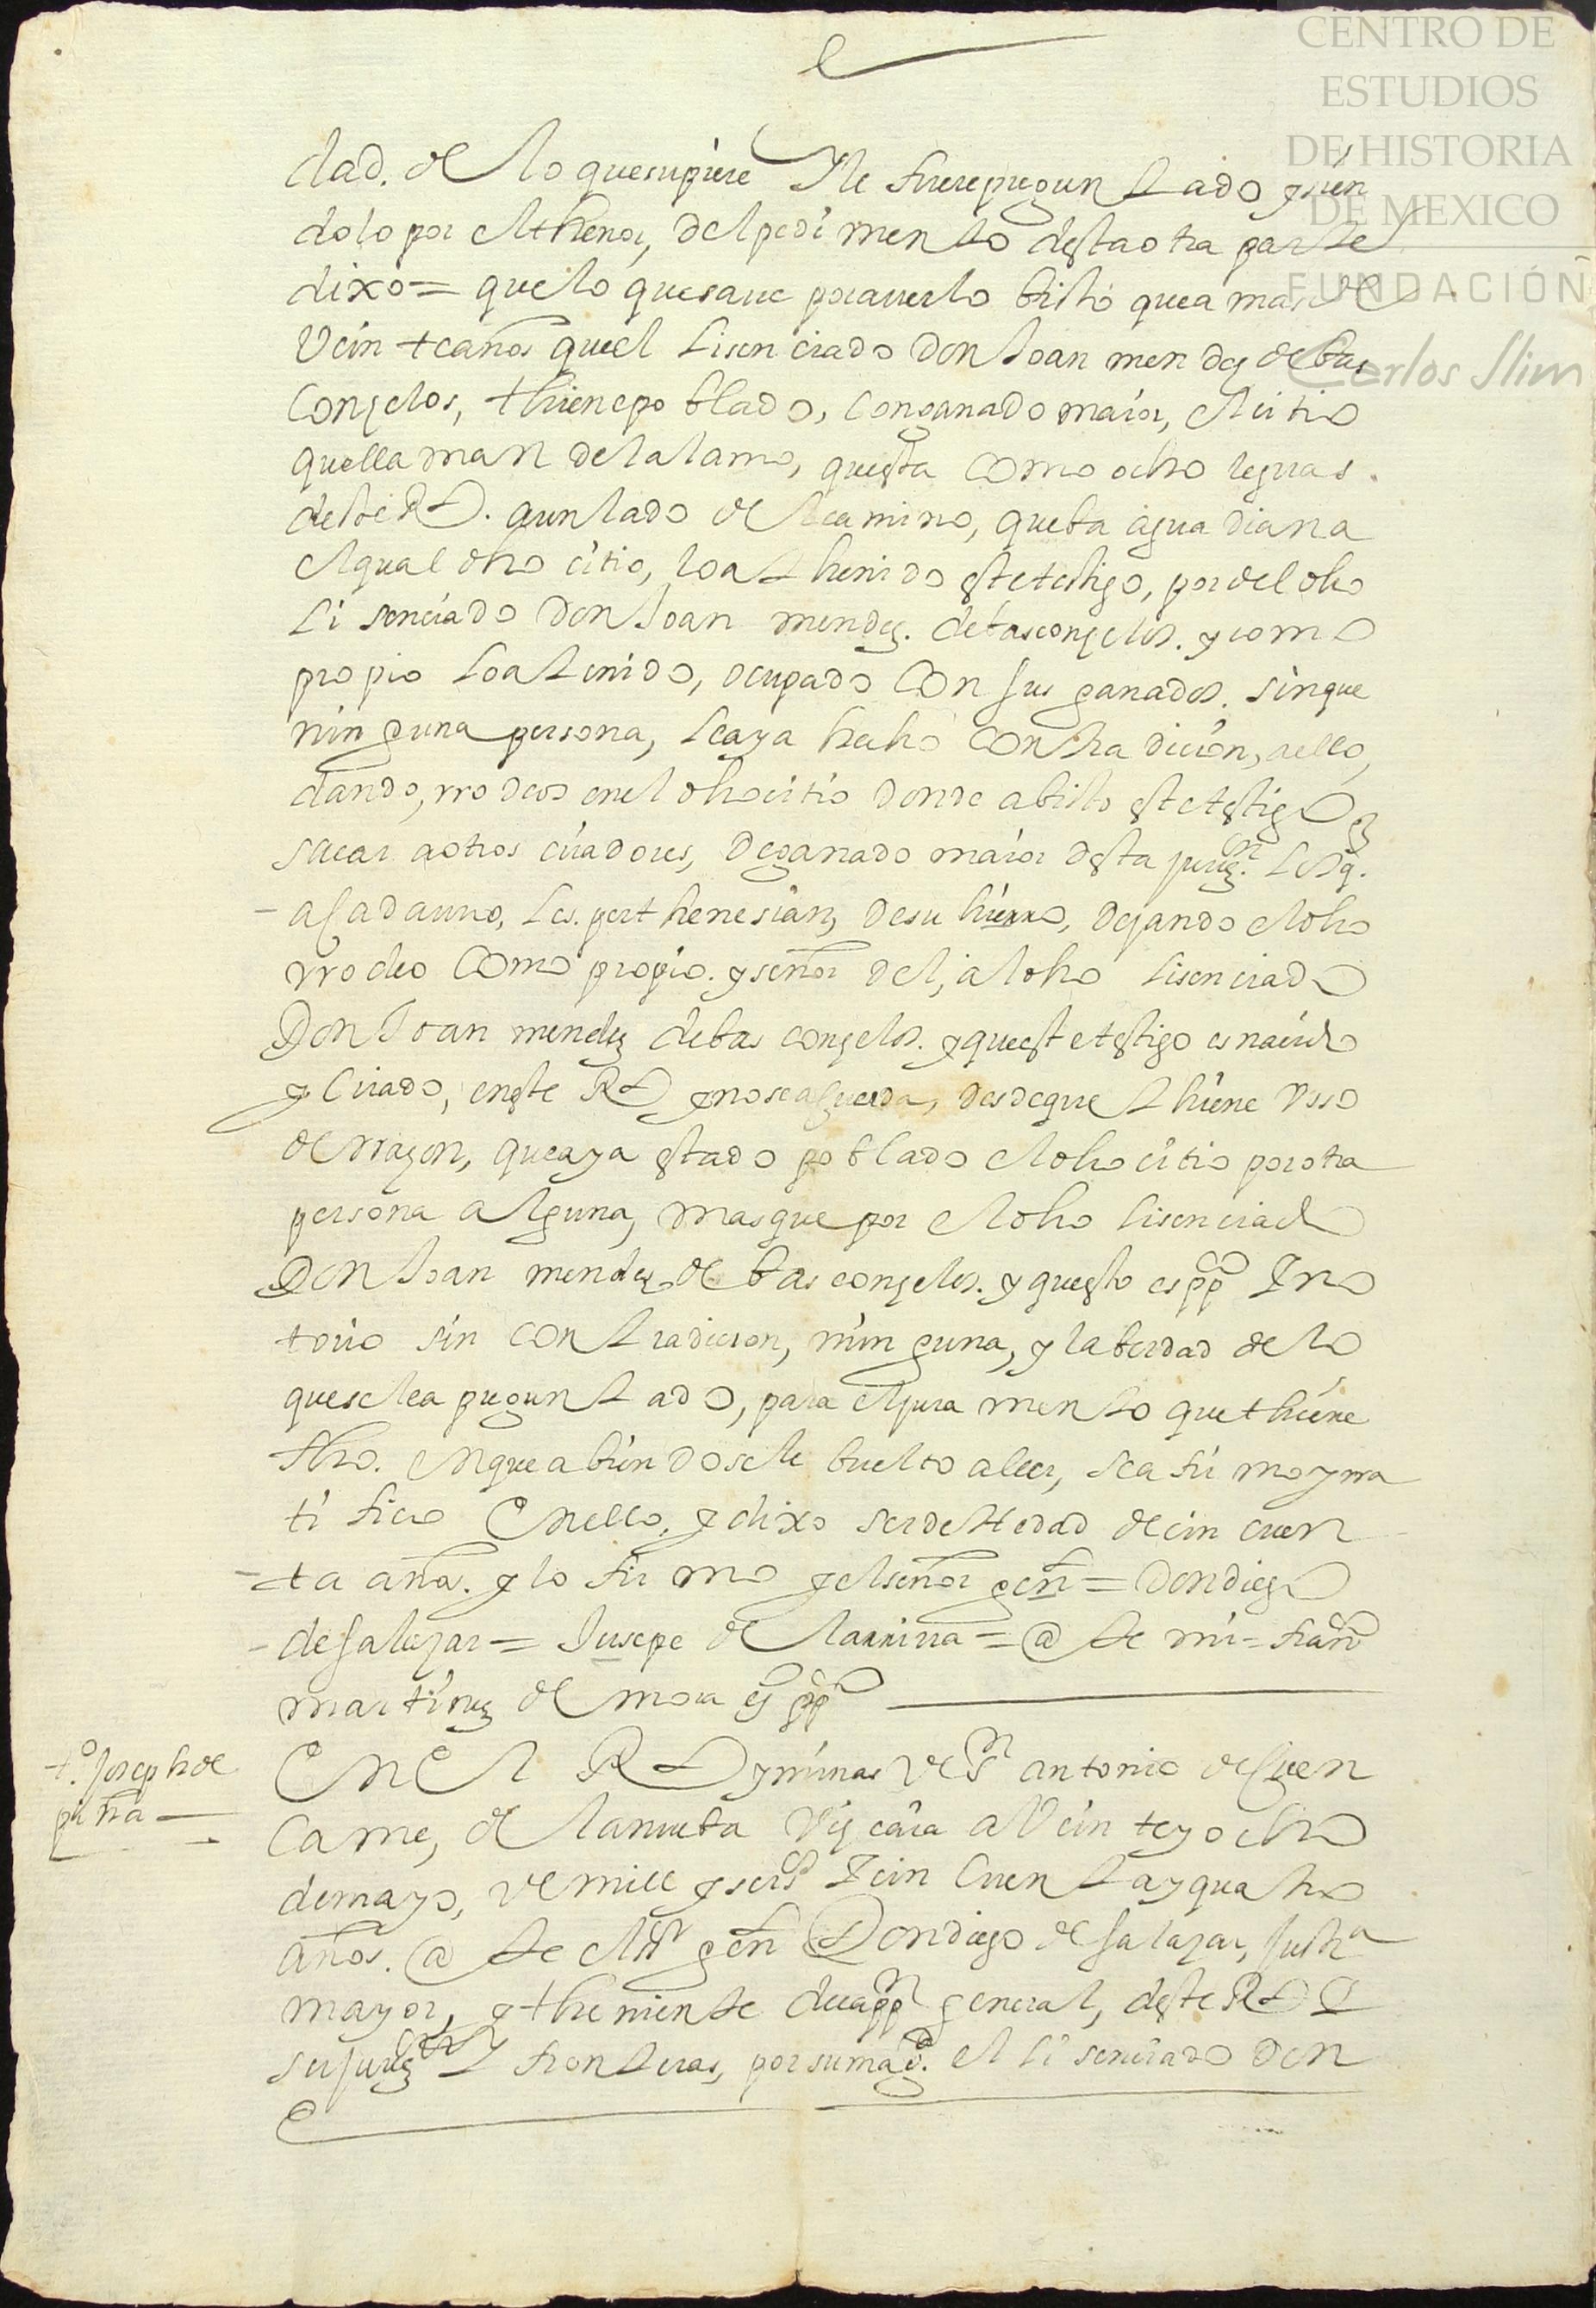 CENTRO DE
ESTUDIOS
DE HISTORIA
DE MEXICO
FUNDACIÓN
Carlos Slim
dad. de lo que supiere Y le fuere preguntado y sien
dolo por el thenor, del pedimento desta otra parte
dixo = que lo que saue por auerlo bisto que a mas de
Veinte años quel Lisenciado Don Joan mendez de bas
conzelos, thiene poblado, con ganado maior, el citio
que llaman del alamo, questa como ocho leguas.
deste Rl. a un lado del camino, que ba a guadiana
el qual dho citio, lo a thenido este testigo, por del dho
Lisenciado Don Joan mendez. de basconzelos. y como
propio lo a tenido, ocupado Con sus ganados. sin que
ninguna persona, le aya hecho Contradicion, a ello,
dando, rrodeos en el dho citio donde a bisto este testigo
sacar a otros criadores, de ganado maior desta juridon. los q.
a cada uno, les. perthenesian, de su hierro, dejando el dho
rrodeo Como propio. y señor del, al dho Lisenciado
Don Joan mendez de bas conzelos. y queste testigo es nacido
y Criado, en este Rl y no se acuerda, desde que thiene Vsso
de rrazon, que aya estado poblado el dho citio por otra
persona alguna, mas que por el dho Lisenciado
Don Joan mendez de bas conzelos. y questo es ppco Y no
torio sin contradicion, ninguna, y la berdad de lo
que se le a preguntado, para el juramento que thiene
fho. En que abiendosele buelto a leer, se afirmo y rra
tifico En ello, y dixo ser de hedad de cincuen
ta años. y lo firmo y el señor genl = Don diego
de salazar = Jusepe de Larrina = ante mi = franco
martinez de mora es ppco
to. Joseph de
piña
En El Rl y minas de Sn antonio de Cuen
Came, de la nueba Vizcaia a Veinte y ocho
de mayo, de mill y seiso Y cin Cuenta y quatro
años. ante el sr genl Don diego de salazar, justa
mayor, y theniente de cappn general, deste Rl Y
su juridon Y fronteras, por su magd. el lisenciado Don